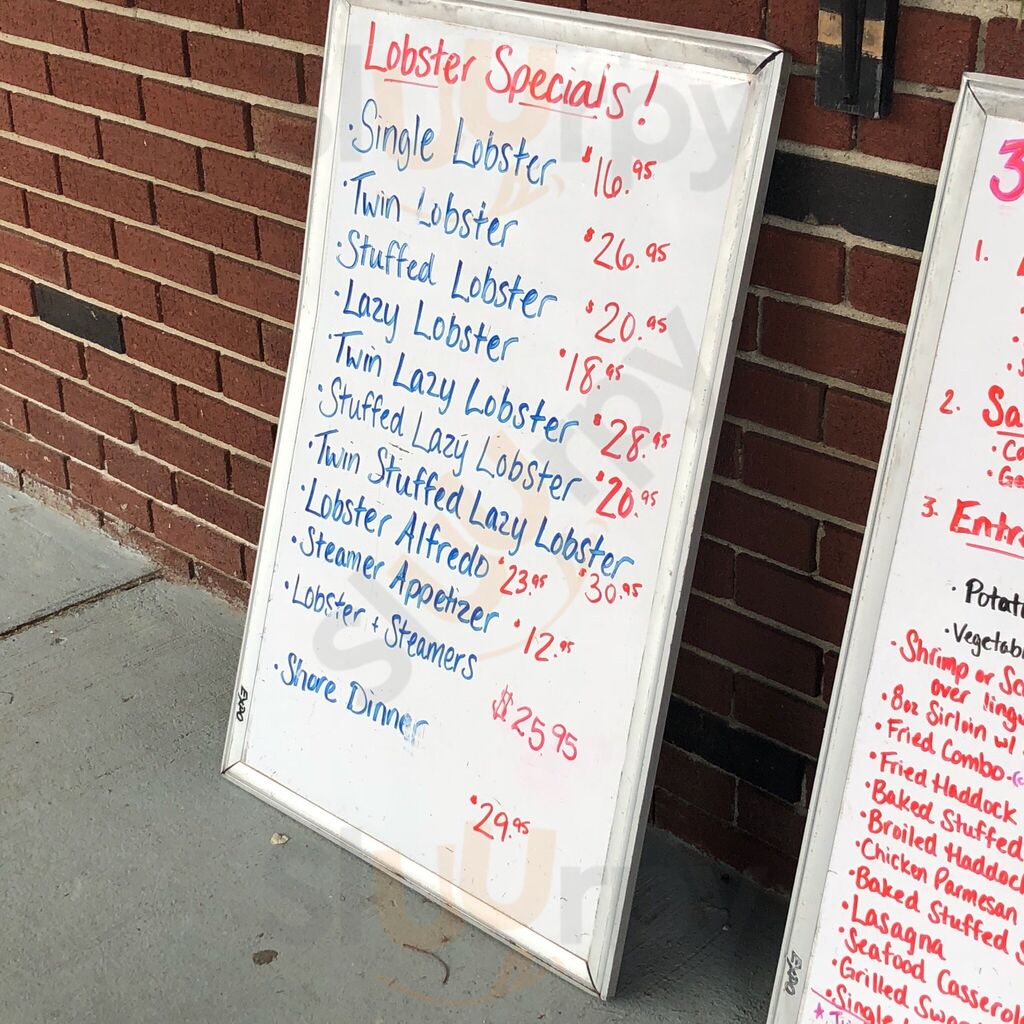 Lobster Specials!
· Single Lobster $16.95
· Twin Lobster $26.95
· Stuffed Lobster $20.95
· Lazy Lobster $18.95
· Twin Lazy Lobster $28.95
· Stuffed Lazy Lobster $20.95
· Twin Stuffed Lazy Lobster $30.95
· Lobster Alfredo $23.95
· Steamer Appetizer $12.95
· Lobster + Steamers $25.95
· Shore Dinner $29.95
EXPO
3
1.
2. Sa
3. Entr
· Potat
· Vegetab
· Shrimp or Sc
over lingu
· 8oz Sirloin w/
· Fried Combo -
· Fried Haddock
· Baked Stuffed
· Broiled Haddock
· Chicken Parmesan
· Baked Stuffed S
· Lasagna
· Seafood Cassero
· Grilled Swo
· Single
EXPO
sluurpy
sluurpy
sluurpy